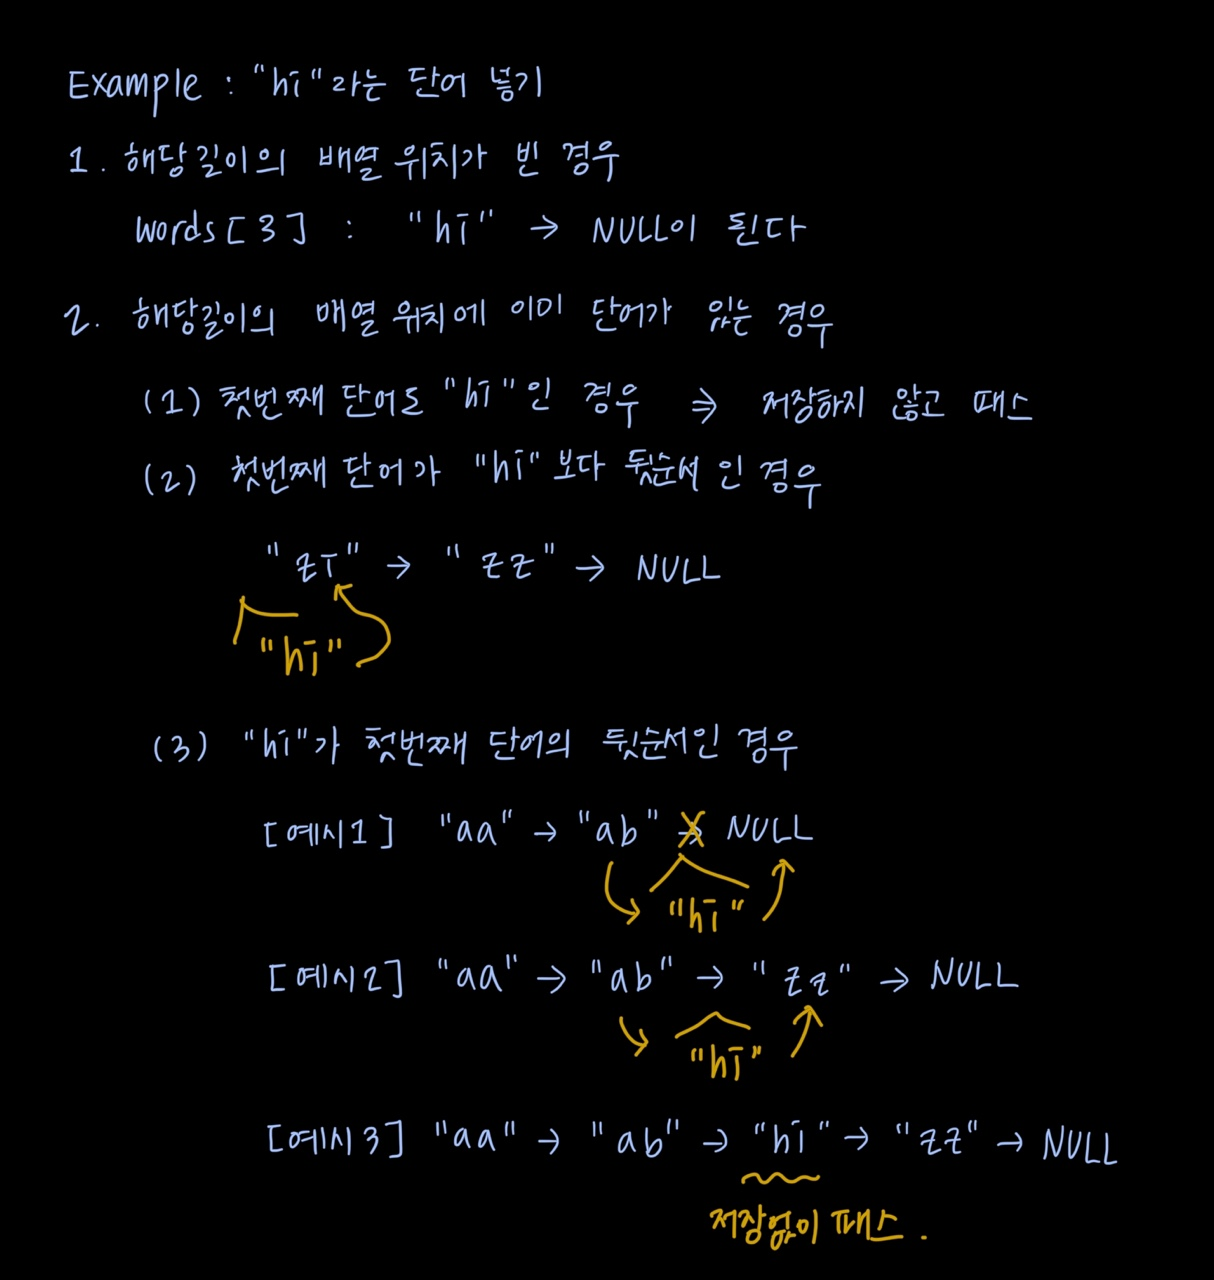 Example : "hi"라는 단어 넣기
1. 해당길이의 배열 위치가 빈 경우
words[3] : "hi" → NULL이 된다
2. 해당길이의 배열 위치에 이미 단어가 있는 경우
(1) 첫번째 단어도 "hi"인 경우 ⇒ 저장하지 않고 패스
(2) 첫번째 단어가 "hi"보다 뒷순서 인 경우
"zi" → "zz" → NULL
"hi"
(3) "hi"가 첫번째 단어의 뒷순서인 경우
[예시1] "aa" → "ab" → NULL
"hi"
[예시2] "aa" → "ab" → "zz" → NULL
"hi"
[예시3] "aa" → "ab" → "hi" → "zz" → NULL
저장없이 패스.